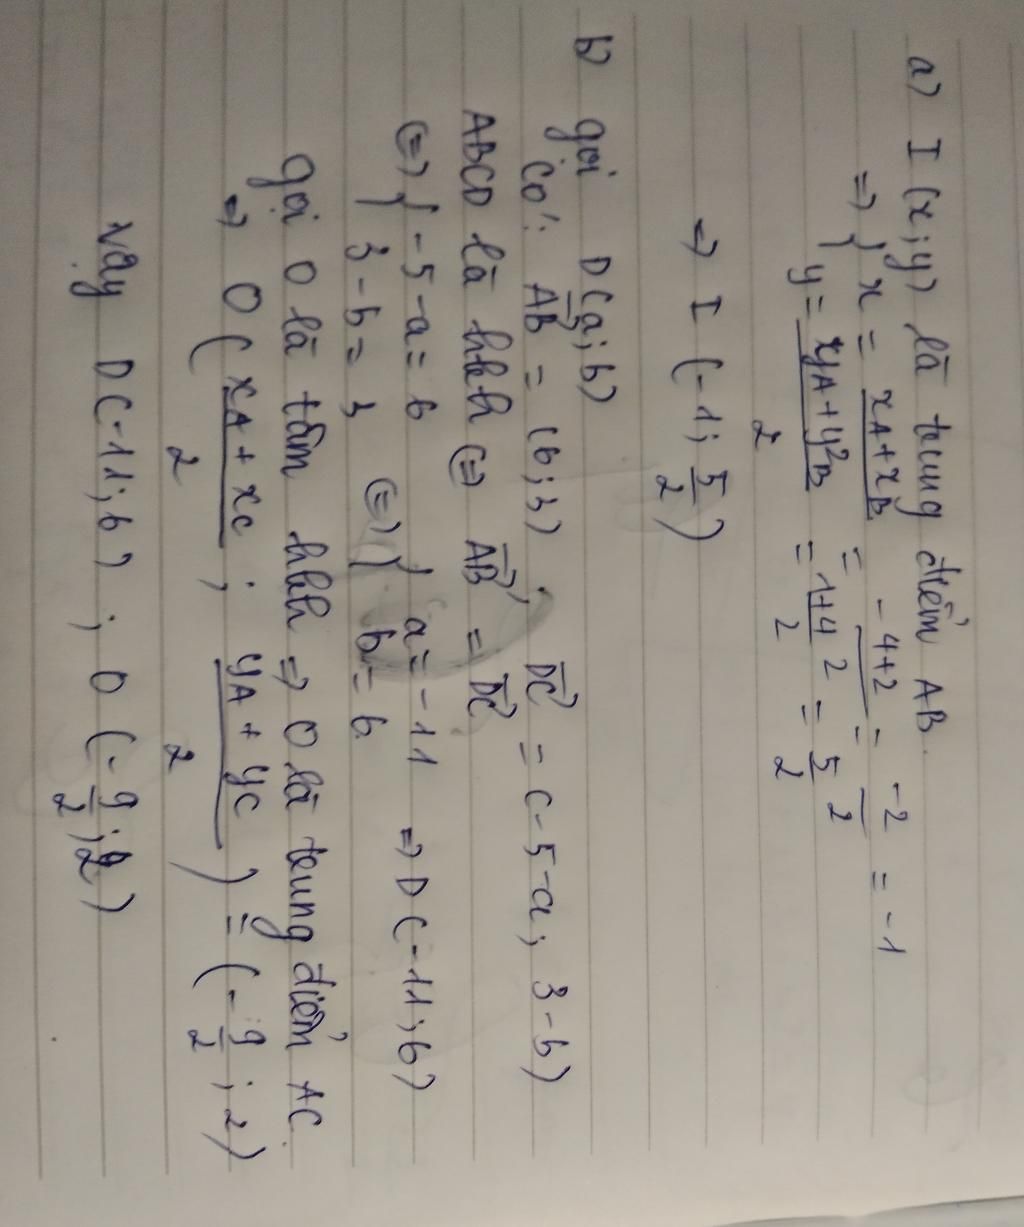 a) I (x; y) là trung điểm AB.
=> { x = xA + xB / 2 = -4+2 / 2 = -2 / 2 = -1
y = yA + yB / 2 = 1+4 / 2 = 5/2
=> I (-1; 5/2)
b) gọi D(a; b)
Có: AB = (6; 3) ; DC = (-5-a; 3-b)
ABCD là hbh <=> AB = DC
<=> { -5-a = 6 <=> { a = -11 => D (-11; 6)
3-b = 3 b = 6
gọi O là tâm hbh => O là trung điểm AC.
=> O ( xA + xC / 2 ; yA + yC / 2 ) = ( -9/2 ; 2 )
Vậy D(-11; 6) ; O (-9/2; 2)